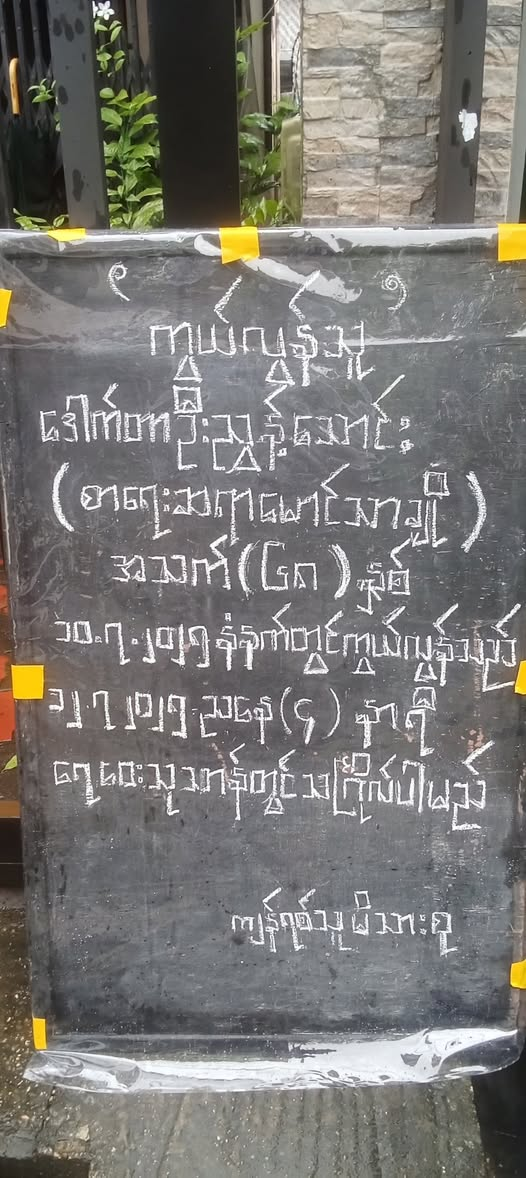 ကွယ်လွန်သူ
ဒေါက်တာဦးညွန့်သောင်း
(စာရေးဆရာမောင်သာချို)
အသက်(၆၈)နှစ်
၁၀.၇.၂၀၂၅ နံနက်တွင်ကွယ်လွန်သည်
၁၂.၇.၂၀၂၅ ညနေ(၄)နာရီ
ရေဝေးသုသာန်တွင်သင်္ဂြိုလ်ပါမည်
ကျန်ရစ်သူမိသားစု